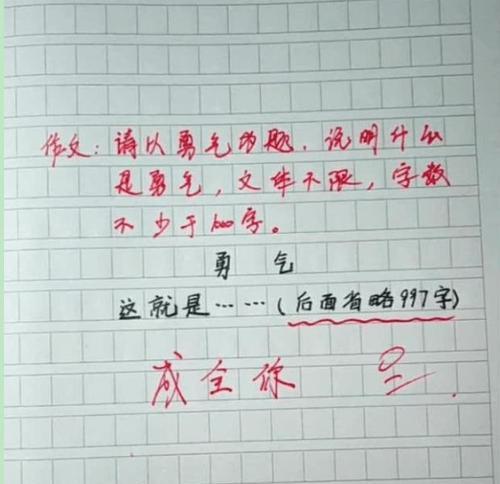 作文：请以勇气为题，说明什么
是勇气，文体不限，字数
不少于1000字。
勇 气
这就是……（后面省略997字）
成全你 呈.